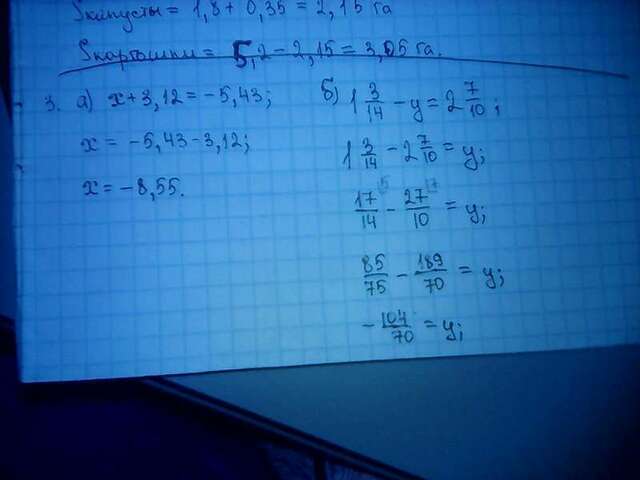 Sкапусты = 1,8 + 0,35 = 2,15 га
Sкартошки = 5,2 - 2,15 = 3,05 га.
3. а) x + 3,12 = -5,43;
x = -5,43 - 3,12;
x = -8,55.
б) 1 3/14 - y = 2 7/10;
1 3/14 - 2 7/10 = y;
17/14 - 27/10 = y;
85/75 - 189/70 = y;
-104/70 = y;